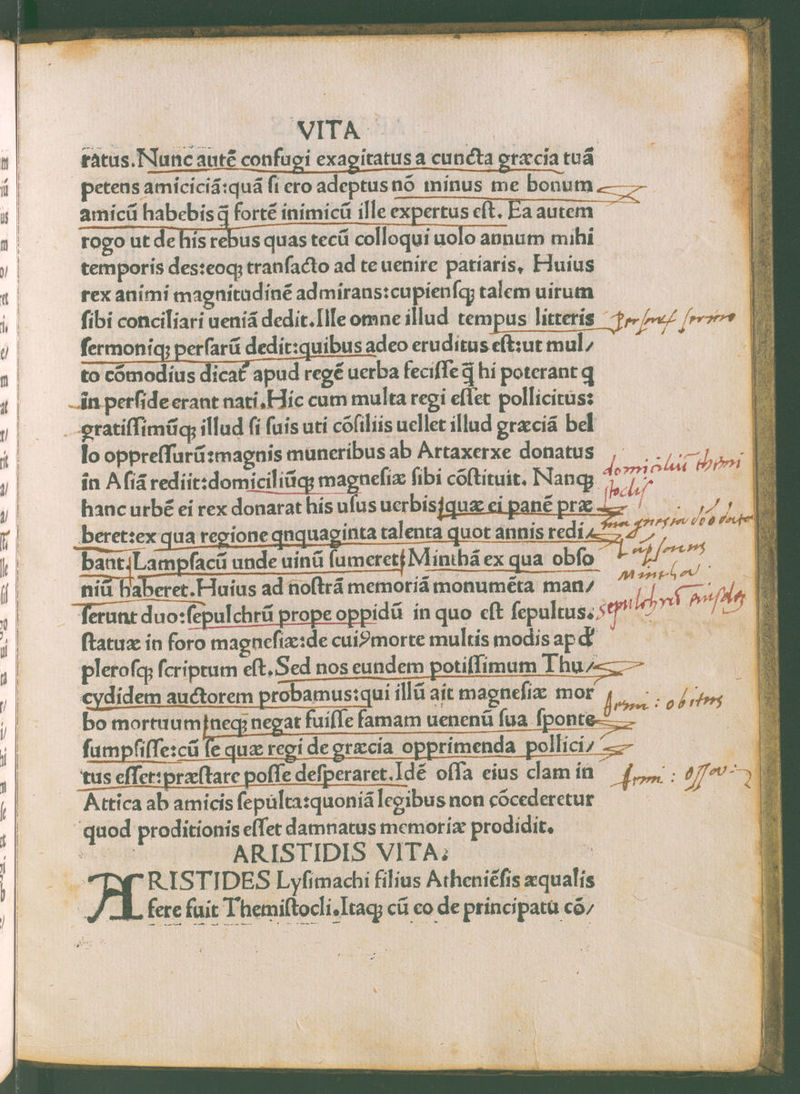 VITA
ratus.Nunc autē confugi exagitatus a cuncta græcia tuā
petens amiciciā:quā ſi ero adeptus nō minus me bonum
amicū habebis q̄ fortē inimicū ille expertus eſt. Ea autem
rogo ut de his rebus quas tecū colloqui uolo annum mihi
temporis des:eoqꝫ tranſacto ad te uenire patiaris, Huius
rex animi magnitudinē admirans:cupienſqꝫ talem uirum
ſibi conciliari ueniā dedit.Ille omne illud tempus litteris
ſermoniqꝫ perſarū dedit:quibus adeo eruditus eſt:ut mul/
to cōmodius dicat̄ apud regē uerba feciſſe q̄ hi poterant q
in perſide erant nati.Hic cum multa regi eſſet pollicitus:
gratiſſimūqꝫ illud ſi ſuis uti cōſiliis uellet illud græciā bel
lo oppreſſurū:magnis muneribus ab Artaxerxe donatus
in Aſiā rediit:domiciliūqꝫ magneſiæ ſibi cōſtituit. Nanqꝫ
hanc urbē ei rex donarat his uſus uerbis:quæ ei panē præ
beret:ex qua regione qnquaginta talenta quot annis redi/
bant:Lampſacū unde uinū ſumeret:Minthā ex qua obſo
niū haberet.Huius ad noſtrā memoriā monumēta man/
ſerunt duo:ſepulchrū prope oppidū in quo eſt ſepultus.
ſtatuæ in foro magneſiæ:de cuiꝰ morte multis modis ap d̄
pleroſqꝫ ſcriptum eſt.Sed nos eundem potiſſimum Thu/
cydidem auctorem probamus:qui illū ait magneſiæ mor
bo mortuum:neqꝫ negat fuiſſe famam uenenū ſua ſponte
ſumpſiſſe:cū ſe quæ regi de græcia opprimenda pollici/
tus eſſet:præſtare poſſe deſperaret.Idē oſſa eius clam in
Attica ab amicis ſepulta:quoniā legibus non cōcederetur
quod proditionis eſſet damnatus memoriæ prodidit.
ARISTIDIS VITA:
ARISTIDES Lyſimachi filius Atheniēſis æqualis
fere fuit Themiſtocli.Itaqꝫ cū eo de principatu cō/
domiciliū themi
ſtocliſ
Lapſacus
Mintha
ſepulchrū eiuſdem
themi : obitus